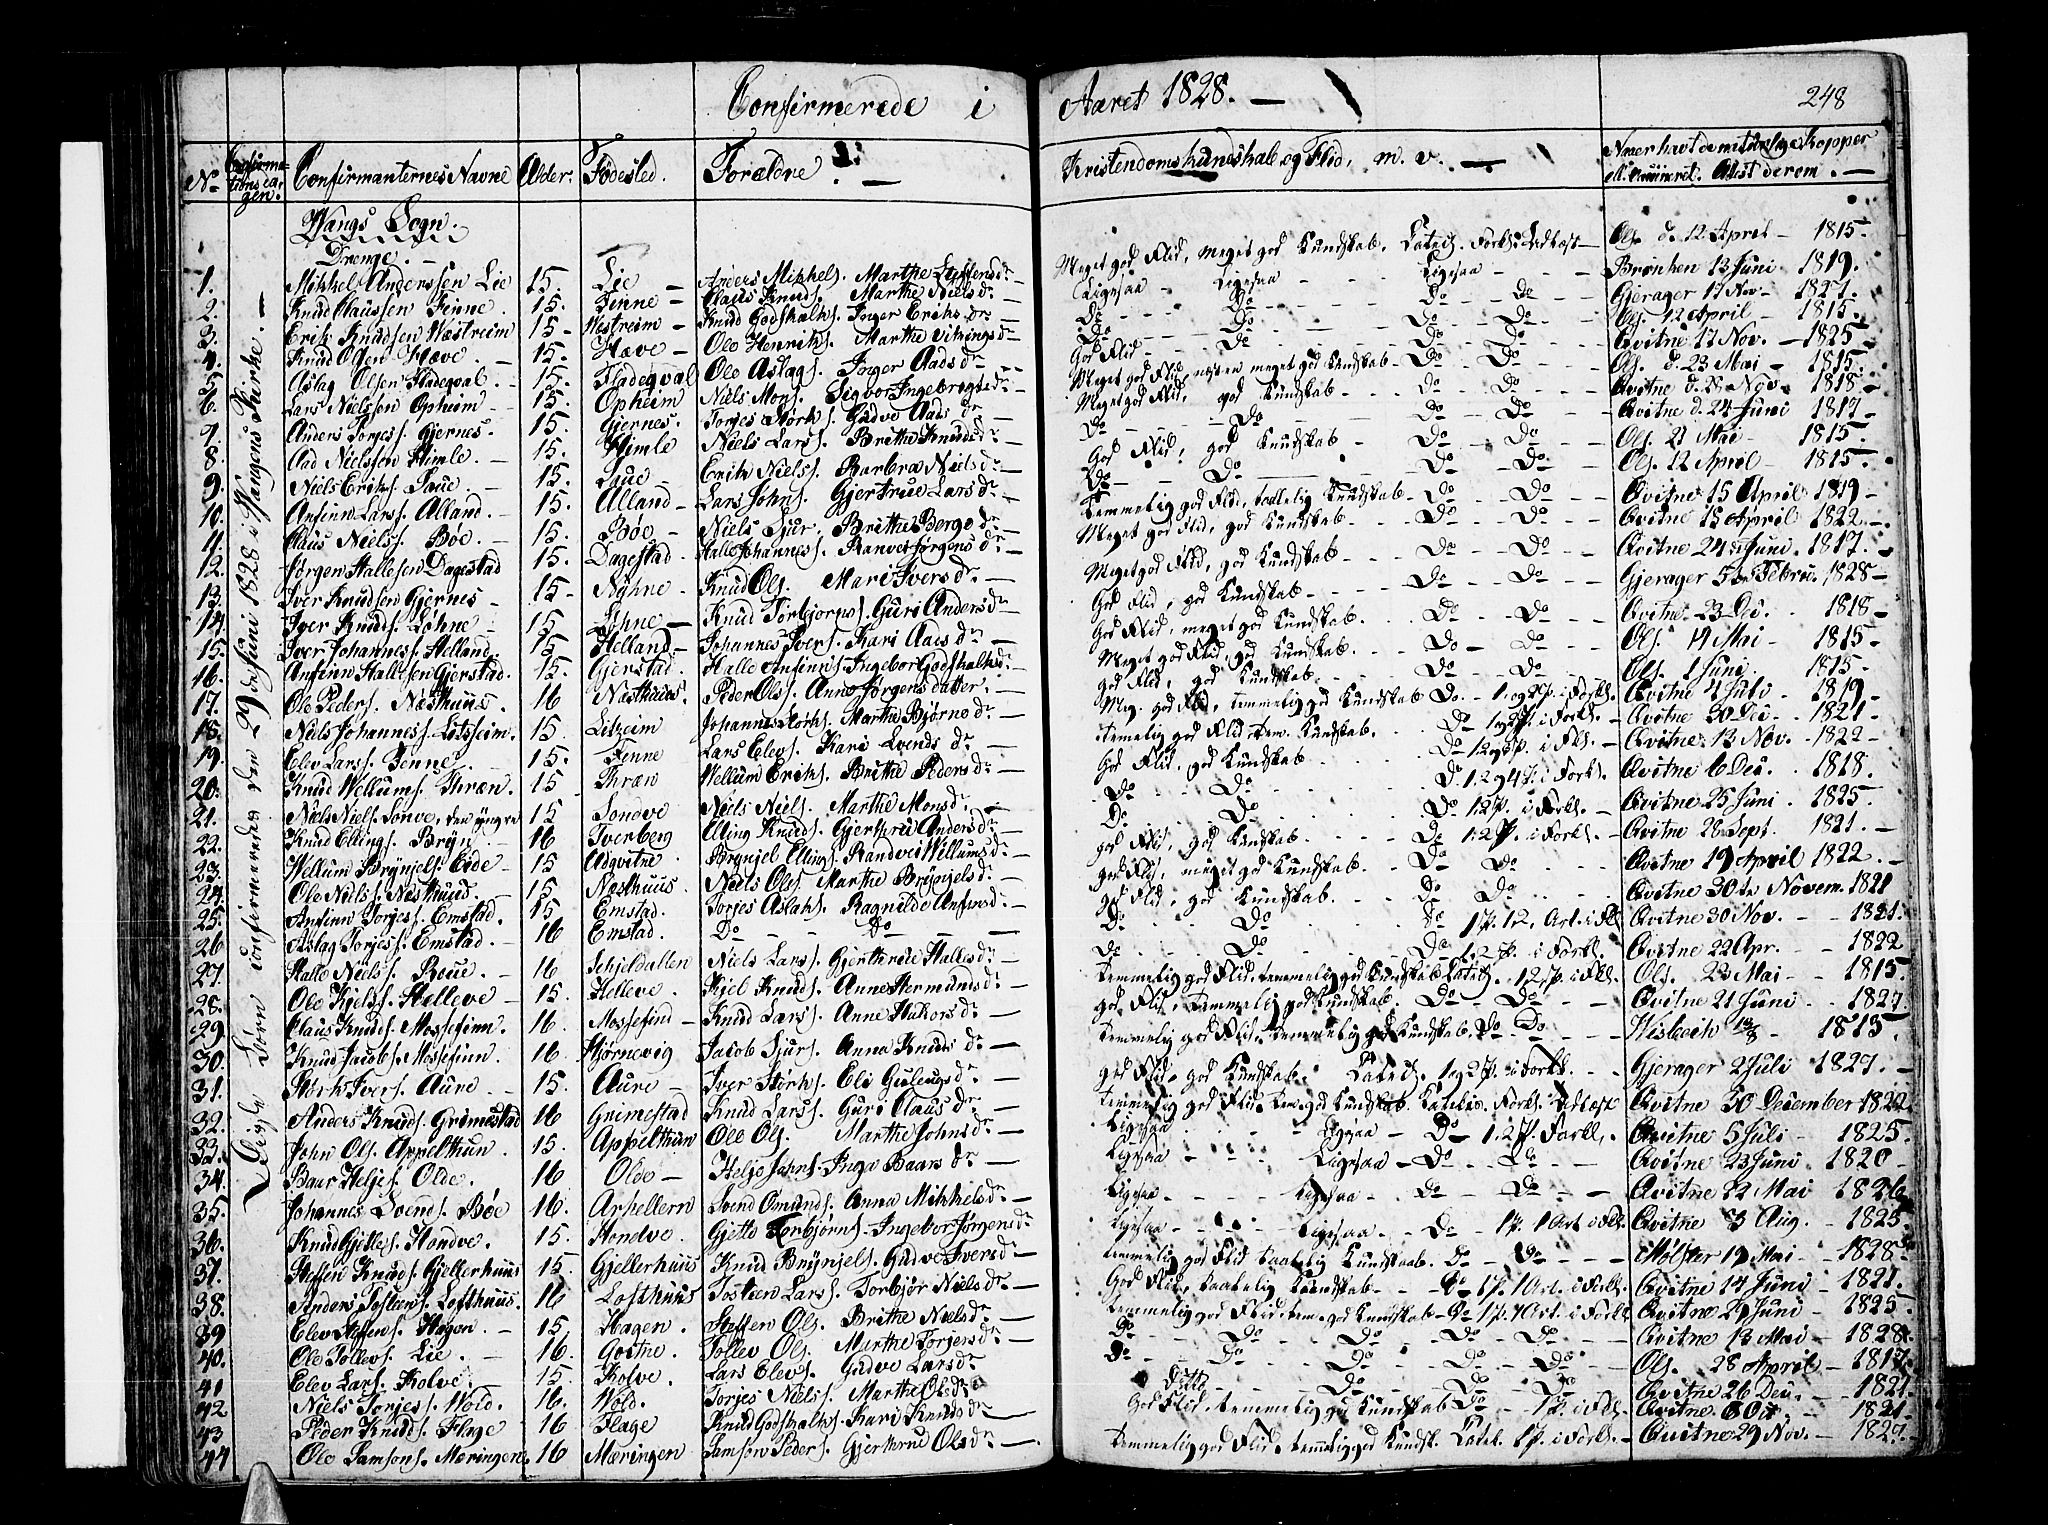 Confirmerede i Aaret 1828. —
248
No Confirmationsdagen. Confirmanternes Navne Alder. Fødested. Forældre. — Kristendomskundskab og Flid, m. v. — Naar havt de naturlige Kopper ell. vaccineret. Attest derom. —
Wangs Sogn.
Drenge. —
Ligesom confirmeredes den 29de Juni 1828 i Wangens Kirke. —
1. Mikkel Anderssen Lie 15. Lie — Anders Mikkels. Marthe Steffensdr — Meget god Flid, meget god Kundskab. Olss. d. 12 April — 1815.
2. Knud Claussen Finne. 15. Finne — Claus Knuds. Marthe Nielsdr — Ligesaa — Ligesaa Ligesaa Brønken 13 Juni 1819.
3. Erik Knudsen Wæstreim 15 — Wæstreim — Knud Godskalks. Inger Eriksdr — Do Do Do Do Gjerager 17 Nov. — 1827.
4. Knud Olsen Hæve. — 15. Hæve — Ole Henriks. Marthe Vikingsdr Do Do Do Do Ols. 12 April — 1815.
5. Aslag Olsen Fladeqval. — 15. Fladeqval Ole Aslags. Inger Aadsdr God Flid Do Do Do Qvitne 17 Nov. — 1825 —
6. Lars Nielssen Opheim — 15. Opheim Niels Mons. Sigvor Ingebrigtsdr — Meget god Flid, næsten meget god Kundskab Do Do Ols. d. 23 Mai — 1815.
7. Anders Torjess. Gjernes. 15. Gjernes. Torjes Størks. Gudve Aadsdr Meget god Flid, god Kundskab Do Do Qvitne d. 28 Nov. 1818.
8. Aad Nielssen Himle. — 15. Himle Niels Larss. Brithe Knudsdr Do Do Do Do Qvitne d. 24 Juni 1817 —
9. Niels Eriks. Saue. — 15. Saue — Erik Niels. Barbra Nielsdr God Flid, god Kundskab Do Do Ols. 21 Mai — 1815.
10. Anfinn Larss. Alland. — 15. Alland — Lars Johns. Gjertrue Larsdr — Do Do Do Do Ols. 12 April — 1815.
11. Claus Niels. Bøe. — 15. Bøe — Niels Sjur. Brithe Bergedr Temmelig god Flid, taalelig Kundskab Do Do Qvitne 15 April 1819 —
12. Jørgen Hallesen Dagestad 15. Dagestad Halle Johannes. Ranvei Jørgensdr — Meget god Flid, god Kundskab Do Do Qvitne 15 April 1822. —
13. Iver Knudsen Gjernes — 15 — Nyhne. Knud Ols. Mari Iversdr — Meget god Flid, god Kundskab Do Do Qvitne 24de Juni. 1817. —
14. Iver Knuds. Løhne — 15 Løhne — Knud Torbjorns. Guri Andersdr God Flid, god Kundskab Do Do Gjerager 5de Febru. 1828 —
15. Iver Johannes. Helland. 15 Helland — Johannes Ivers. Kari Aadsdr God Flid, meget god Kundskab Do Do Qvitne. 23 De. 1818 —
16. Anfinn Hallesen Gjerstad. 15. Gjerstad. Halle Anfinns. Ingebor Godskalksdr Meget god Flid, god Kundskab Do Do Ols. 14 Mai — 1815 —
17. Ole Peders. Næsthuus. 16 Næsthuus. Peder Ols. Anne Jørgensdatter. — god Flid, god Kundskab Do Do Ols. 1 Juni. 1815 —
18. Niels Johannes. Litsheim. 15. Litzeim Johannes Størks. Marthe Bjørnsdr — Meg. god Flid, temmelig god Kundskab Do. 1 og 2 P. i Forkl. Qvitne 4 Juli — 1819 —
19. Elev Larss. Finne. — 15. Finne Lars Elevs. Kari Svendsdr — temmelig god Flid, tem. Kundskab. Do 1 og 2 P. i Forkl. Qvitne 30 De — 1821 —
20. Knud Wellums. Thræn. 15 Thræn Wellum Eriks. Brithe Pedersdr — God Flid, god Kundskab Do 1 2 og 3 P. i Fkl. Qvitne 13 Nov. — 1822 —
21. Niels Niels. Sonve, den yngre 15 Sondve Niels Niels. Marthe Monsdr — Do Do Do 1. 2 og 4 P. i Forkl. Qvitne 6 De. 1818.
22. Knud Ellings. Bryn. 16 Iverberg Elling Knuds. Gjerthru Andersdr — Do Do Do 1. 2 P. i Forkl. Qvitne 25 Juni 1825.
23. Wellum Brynjels. Eide — 15 Adqvitne. Brynjel Ellings. Randvei Willumsdr — god Flid, god Kundskab Do 1. 2 P. i Forkl. Qvitne 28 Sept. 1821. —
24. Ole Niels. Næsthuus. — 15. Næsthuus. Niels Ols. Marthe Brynjelsdr. — god Flid, meget god Kundskab. Do Do Qvitne 19 April 1822. —
25. Anfinn Torjess. Emstad. — 15 Emstad. Torjes Aslaks. Ragnilde Anfinsdr — god Flid, god Kundskab Do Do Qvitne 30te Novem. 1821
26 Aslag Torjess. Emstad. — 16 Emstad. Do — Do — — Do Do Do 1 P. 1. 2, Art. i Fkl Qvitne 30 Nov. — 1821.
27. Halle Niels. Roue. — 16 Schjeldallen Niels Lars. Gjerthrude Hallesdr — Do Do Do 1. 2 P. i Forkl. Qvitne 22 Apr. — 1822
28. Ole Kjels. Helleve — 15. Helleve. Kjel Knuds. Anne Hermundsdr — temmelig god Flid, temmelig god Kundskab Catech. 1 2 P. i Fkl. Ols. 23 Mai — 1815.
29 Claus Knuds. Mossefinn. 16. Mossefind — Knud Lars. Anne Hakorsdr — god Flid, temmelig god Kundskab. Do Do Qvitne 21 Juni 1827.
30. Knud Jacobs. Mossefinn. 16. Hjørnevig Jacob Sjurs. Anna Knudsdr — temmelig god Flid, temmelig god Kundskab Do Do Wisbech 13/8 — 1815
31. Størk Ivers. Aure. 15. Aure — Iver Størks. Eli Gulengsdr — god Flid, god Kundskab. Catech. 1 og 2 P. i Forkl. Gjerager 2 Juli 1827. —
32. Anders Knuds. Grimestad 16 Grimestad Knud Lars. Guri Clausdr — temmelig god Flid, tem. god Kundskab. Katekis. Forkl. Qvitne 30 December 1822
33. John Ols. Appelthun. 15. Appelthun Ole Ols. Marthe Johnsdr — Ligesaa Ligesaa — Do — 1. 2 P. Forkl. Qvitne 5 Juli — 1825.
34. Baar Heljes. Olde. 16 Olde — Helje Johns. Inga Baarsdr — Ligesaa Ligesaa — Do Do Qvitne 23 Juni 1820 —
35. Johannes Svends. Bøe 16. Svend Omunds. Anna Mikkelsdr — Ligesaa Ligesaa Do Do Qvitne 22 Mai 1826
36. Knud Gjettes. Hondve. 15. Hondve. Gjette Torbjørns. Ingebor Jørgensdr Ligesaa Ligesaa — Do — 1 P. 1 Art. i Fkl Qvitne 3 Aug. — 1825.
37. Steffen Knuds. Gjellerhuus 15. Gjellerhuus Knud Brynjels. Gudve Iversdr — temmelig god Flid taalelig Kundskab. Do Do Mølster 19 Mai — 1828
38. Anders Tosteens. Lofthuus. 16 Lofthuus Tosteen Lars. Torbjør Nielsdr — God Flid, taalelig Kundskab Do 1 P. 1 Art. i Forkl. Qvitne 14 Juni — 1821.
39 Elev Steffens. Hagen. — 15 Hagen. Steffen Ols. Brithe Nielsdr — temmelig god Flid, tem. god Kundskab Do 1 P. 1 Art. i Forkl Qvitne 29 Juni — 1825
40. Ole Tollevs. Lie. — 16. Gostne. Tollev Ols. Marthe Torjersdr — Do Do Do Do Do Qvitne 13 Mai — 1828
41 Elev Lars. Kolve. — 15. Kolve. Lars Elevs. Gudve Larsdr Do Do Do Do Do Ols. 28 April — 1817.
42 Niels Torjes. Wold. 16. Wold. Torjes Niels. Marthe Olsdr Ditto Do Do Do Qvitne 26 De. — 1821.
43 Peder Knuds. Flage 16 Flage Knud Godskalks. Kari Knudsdr — God Flid, temmelig god Kundskab Do 1 P. i Fkl. Qvitne. 1821.
44 Ole Samsons. Mæringen. 16 Mæringen Samson Peders. Gjertrue Olsdr — temmelig god Flid, temmelig god Kundsk. Catek. 1 P. i Forkl. — Qvitne 29 Nov. — 1827.